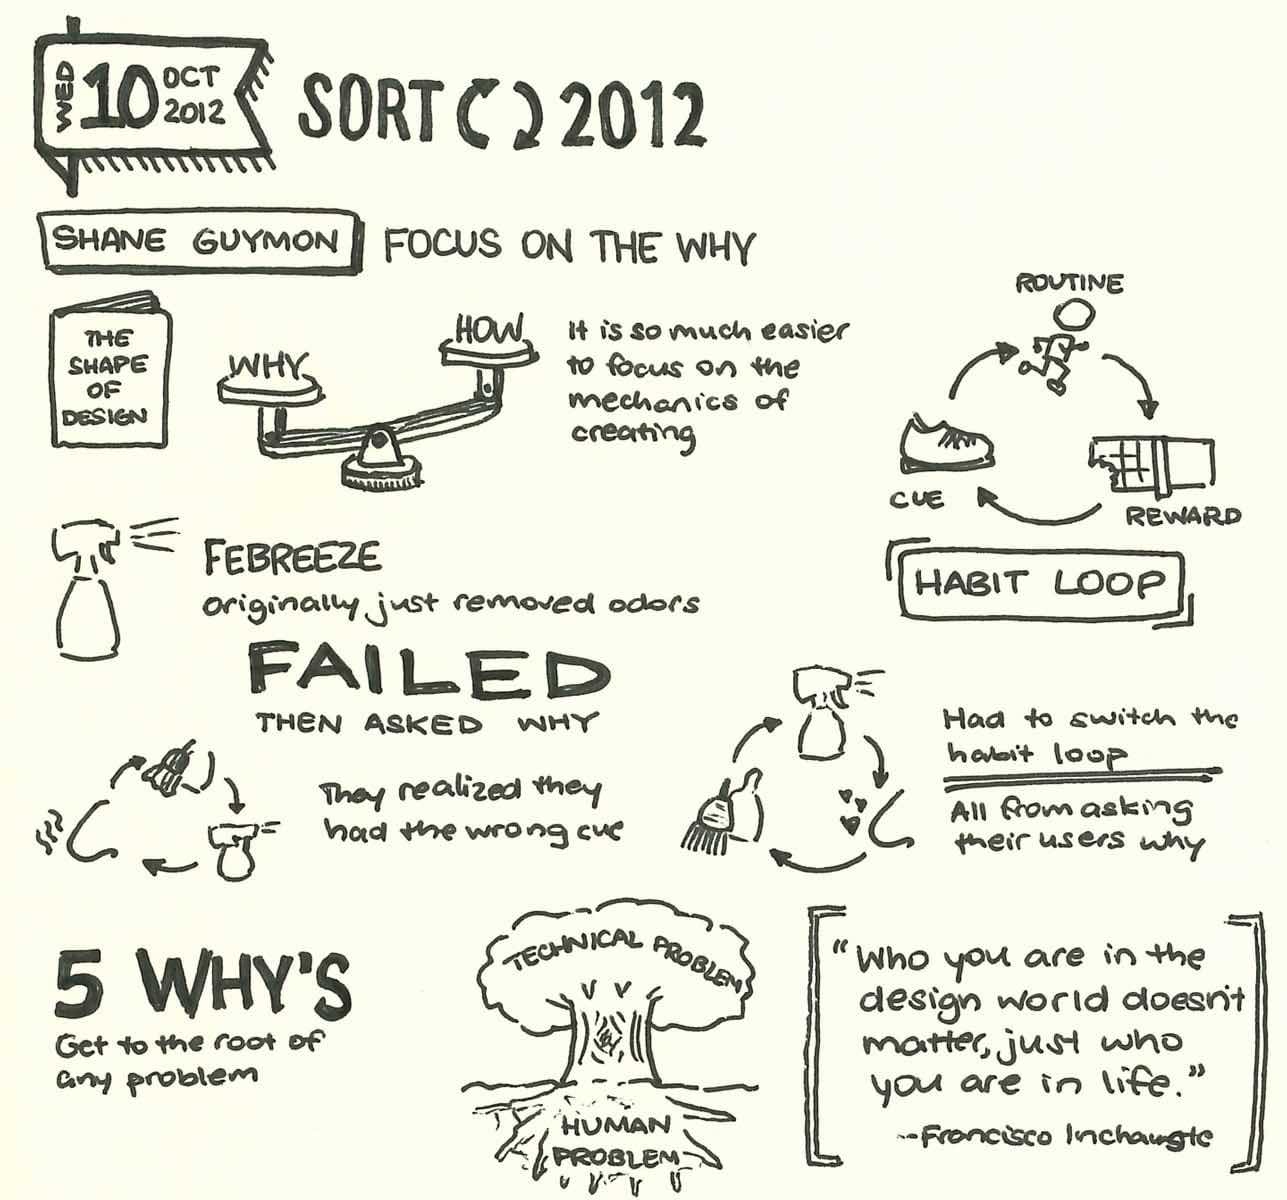 WED 10 OCT 2012
SORT 2012
SHANE GUYMON
FOCUS ON THE WHY
THE
SHAPE
OF
DESIGN
WHY
HOW
It is so much easier
to focus on the
mechanics of
creating
ROUTINE
CUE
REWARD
HABIT LOOP
FEBREEZE
originally just removed odors
FAILED
THEN ASKED WHY
They realized they
had the wrong cue
Had to switch the
habit loop
All from asking
their users why
5 WHY'S
Get to the root of
any problem
TECHNICAL PROBLEM
HUMAN
PROBLEM
"Who you are in the
design world doesn't
matter, just who
you are in life."
--Francisco Inchauste